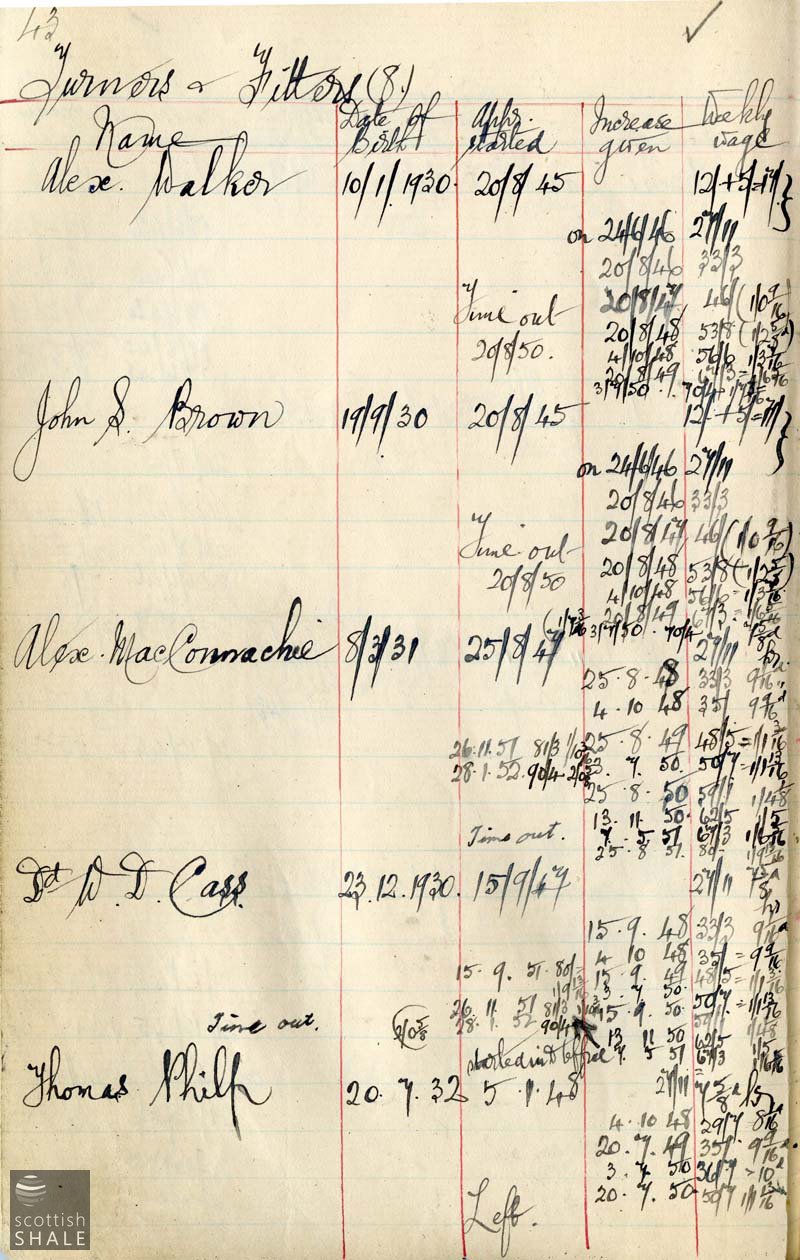 43
Turners & Fitters (8.)
Name Date of Birth Appr. started Increase given Weekly wage
Alex. Walker 10/1/1930. 20/8/45 12/+5/=17/
on 24/6/46 27/11
20/8/46 33/3
Time out 20/8/47 46/ (1/0 9/16
20/8/50. 20/8/48 53/8
4/10/48 56/6
20/8/49 67/3
31/7/50 70/4
John S. Brown 19/9/30 20/8/45 12/+5/=17/
on 24/6/46 27/11
20/8/46 33/3
Time out 20/8/47 46/ (1/0 9/16)
20/8/50 20/8/48 53/8
4/10/48 56/6
20/8/49 67/3
31/7/50 . 70/4
Alex. MacConnachie 8/3/31 25/8/47 27/11
25.8.48 33/3
4.10 48 35/
26.11.51 81/3 25.8.49 48/5
28.1.52. 90/4 3.7.50. 50/7
25.8.50
13.11.50. 62/5
Time out. 7.5.51 67/3
25.8.51.
Dd W. D. Cass. 23.12.1930. 15/9/47 27/11
15.9.48 33/3
4 10 48 35/
15.9.51. 80/ 15.9.49 48/5
3.7.50. 50/7
26.11.51 81/3 15.9.50
Time out. 2/0 5/8 28.1.52 90/4
13 11 50 62/5
started in 7.5.51 67/3
Thomas Philp 20.7.32 5.1.48 27/11
4.10 48 29/7
20.7.49 35/
3.7.50 36/7
20.7.50 50/7
Left.
scottish
SHALE